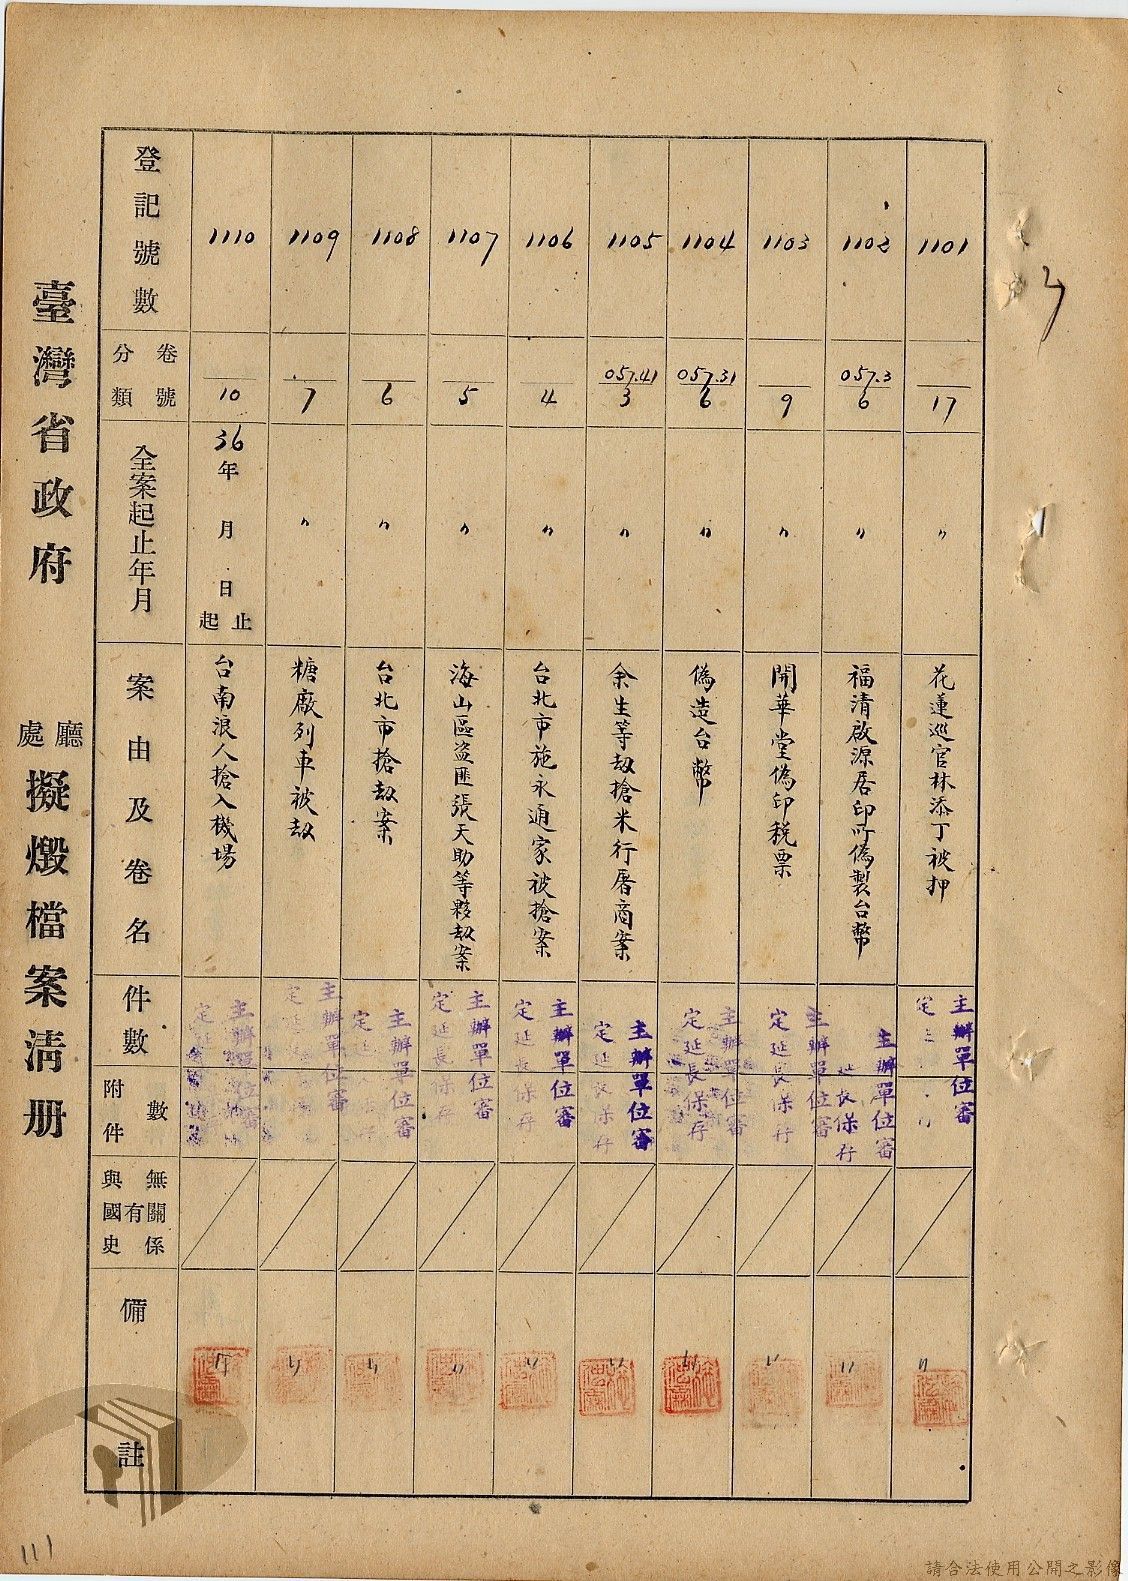 臺灣省政府 廳處 擬燬檔案清册
登記號數
分類 卷號
全案起止年月
案由及卷名
件數
附件數
與國史有無關係
備註
1101
17
〃
花蓮巡官林添丁被押
主辦單位審
定
〃
1102
057.3
6
〃
福清啟源居印所偽製台幣
主辦單位審
延長保存
〃
1103
9
〃
開華堂偽印稅票
主辦單位審
定延長保存
〃
1104
057.31
6
〃
偽造台幣
主辦單位審
定延長保存
〃
1105
057.41
3
〃
余生等劫搶米行屠商案
主辦單位審
定延長保存
〃
1106
4
〃
台北市施永通家被搶案
主辦單位審
定延長保存
〃
1107
5
〃
海山區盜匪張天助等夥劫案
主辦單位審
定延長保存
〃
1108
6
〃
台北市搶劫案
主辦單位審
定
〃
1109
7
〃
糖廠列車被劫
主辦單位審
定
〃
1110
10
36年 月 日起止
台南浪人搶入機場
主辦單位審
定延
存
111
請合法使用公開之影像